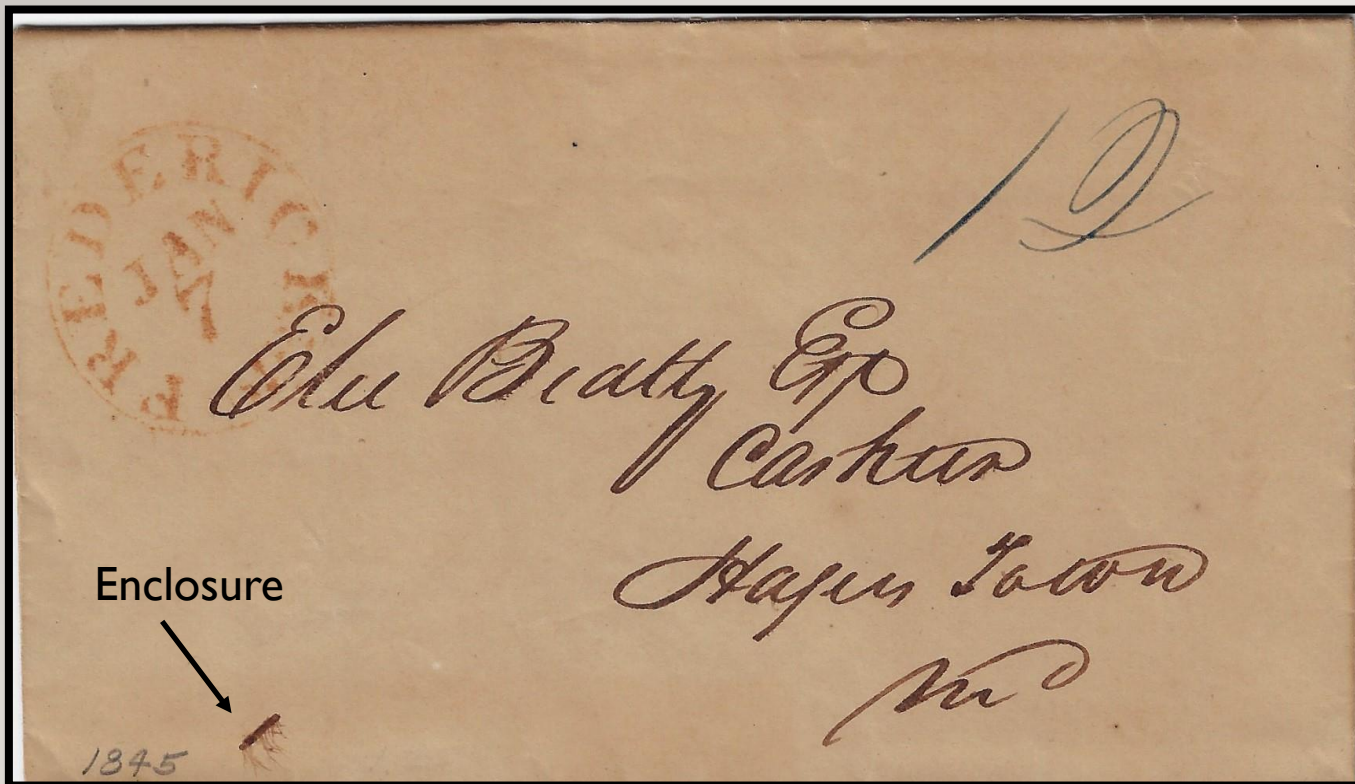 FREDERICK Md
JAN
7
12
Elie Beatty Esq
Cashier
Hagers Town
Md
Enclosure
1845